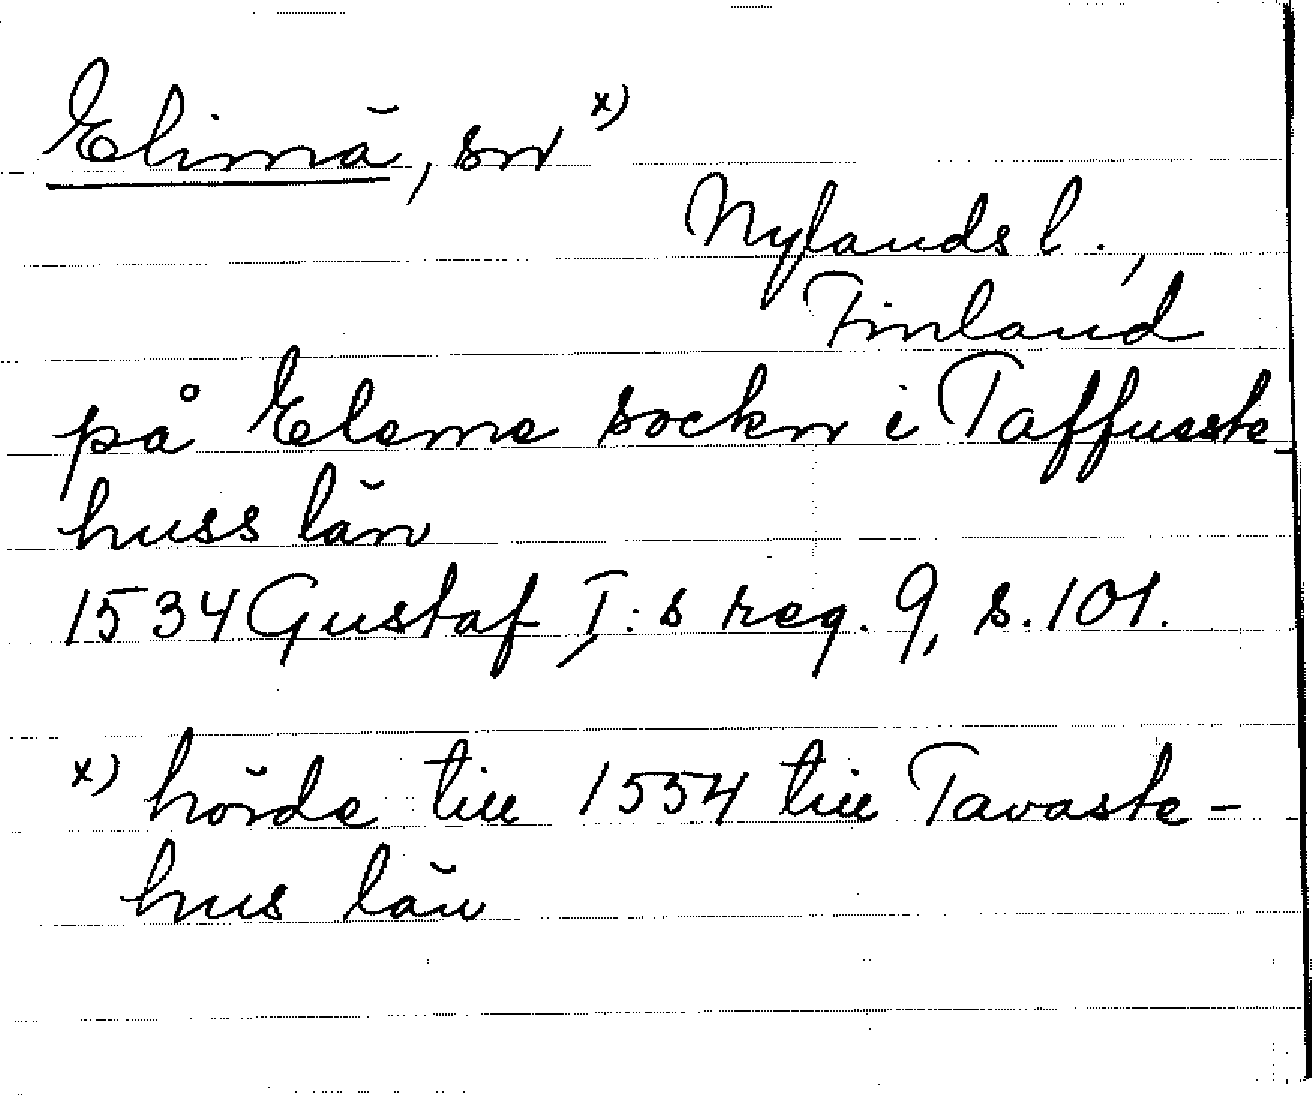 Elimä, sn x)
Nylands l.,
Finland
på Eleme sockn i Taffueste
huss län
1534 Gustaf I:s reg. 9, s. 101.
x) hörde till 1554 till Tavaste-
hus län